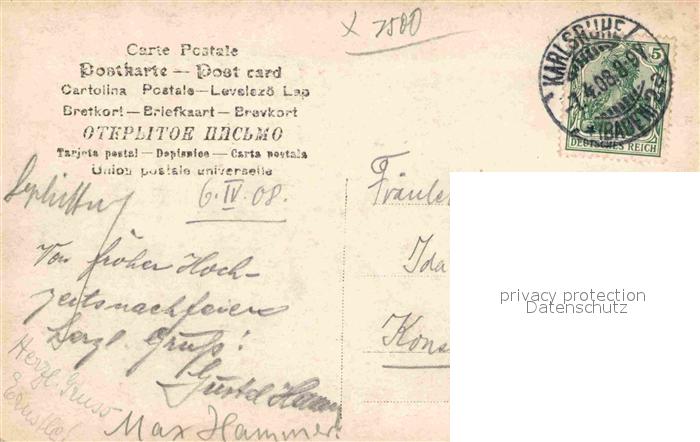 x 7500
Carte Postale
Postkarte — Post card
Cartolina Postale — Levelező Lap
Brefkort — Briefkaart — Brevkort
ОТКРЫТОЕ ПИСЬМО
Tarjeta postal — Dopisnice — Carta postala
Union postale universelle
KARLSRUHE
(BADEN) 2
5
DEUTSCHES REICH
6.IV.08.
Fräulei
Ida
Kons
Von froher Hoch-
zeitsnachfeier
Herzl. Gruß!
Gustel Hamm
Herzl. Gruss
Max Hammer.
privacy protection
Datenschutz